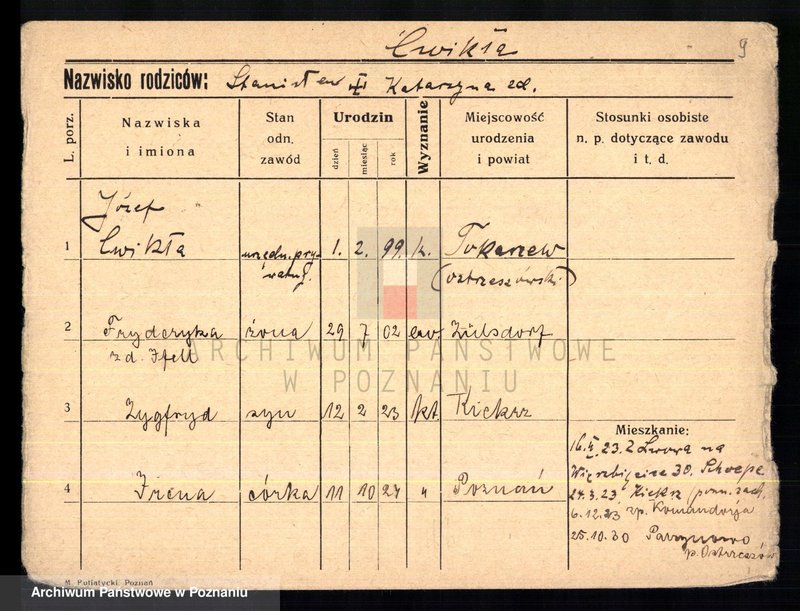 Ćwikła
9
Nazwisko rodziców: Stanisław Katarzyna zd.
L. porz.
Nazwiska
i imiona
Stan
odn.
zawód
Urodzin
dzień
miesiąc
rok
Wyznanie
Miejscowość
urodzenia
i powiat
Stosunki osobiste
n. p. dotyczące zawodu
i t. d.
Józef
1 Cwikła urzędn. pry- 1. 2. 99. k. Tokarzew
watny. (ostrzeszówski)
2 Fryderyka żona 29 7 02 ew. Züllsdorf
zd. Ifell
ARCHIWUM PAŃSTWOWE
W POZNANIU
3 Zygfryd syn 12 2 23 kt. Kiekrz
Mieszkanie:
23 z Lwowa na
30.
4 Irena córka 11 10 27 " Poznań
24.3.23 Kiekrz pozn. zach.
6.12.23 Komandorja
25.10.30
p. Ostrzeszów
M. Putiatycki Poznań
Archiwum Państwowe w Poznaniu